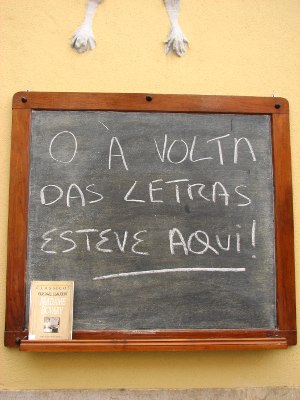 O À VOLTA
DAS LETRAS
ESTEVE AQUI!